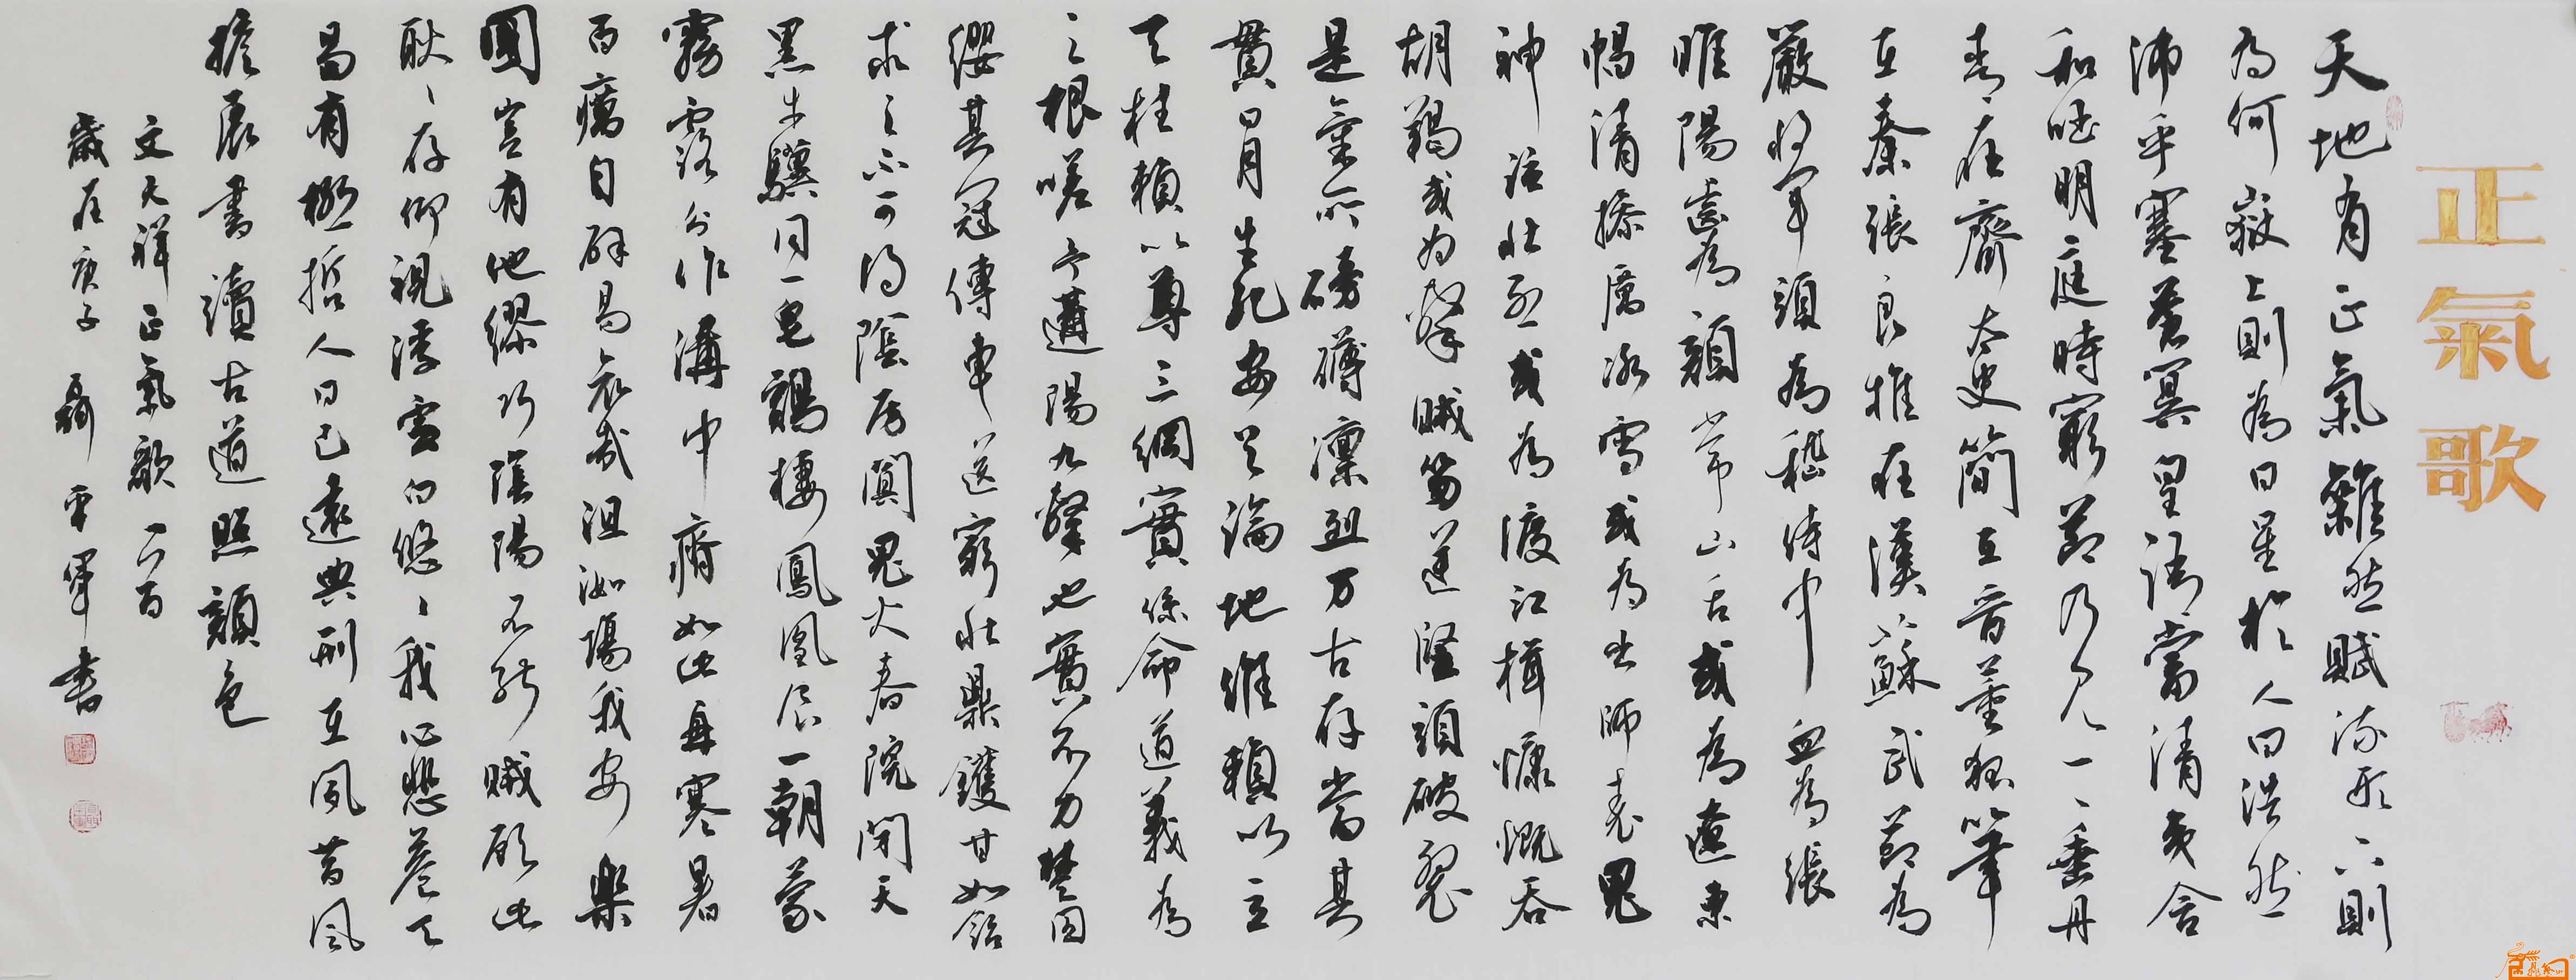 正氣歌
天地有正氣雜然賦流形下則
為河嶽上則為日星於人曰浩然
沛乎塞蒼冥皇路當清夷含
和吐明庭時窮節乃見一一垂丹
青在齊太史簡在晉董狐筆
在秦張良椎在漢蘇武節為
嚴將軍頭為嵇侍中血為張
睢陽齒為顏常山舌或為遼東
帽清操厲冰雪或為出師表鬼
神泣壯烈或為渡江楫慷慨吞
胡羯或為擊賊笏逆豎頭破裂
是氣所磅礴凜烈万古存當其
貫日月生死安足論地維賴以立
天柱賴以尊三綱實係命道義為
之根嗟予遘陽九隸也實不力楚囚
纓其冠傳車送窮北鼎鑊甘如飴
求之不可得陰房闃鬼火春院閉天
黑牛驥同一皂鷄棲鳳凰食一朝蒙
霧露分作溝中瘠如此再寒暑
百癘自辟易哀哉沮洳場我安樂
國豈有他繆巧陰陽不能賊顧此
耿耿存仰視浮雲白悠悠我心悲蒼天
曷有極哲人日已遠典刑在夙昔風
檐展書讀古道照顏色
文天祥正氣歌一首
歲在庚子 軍書